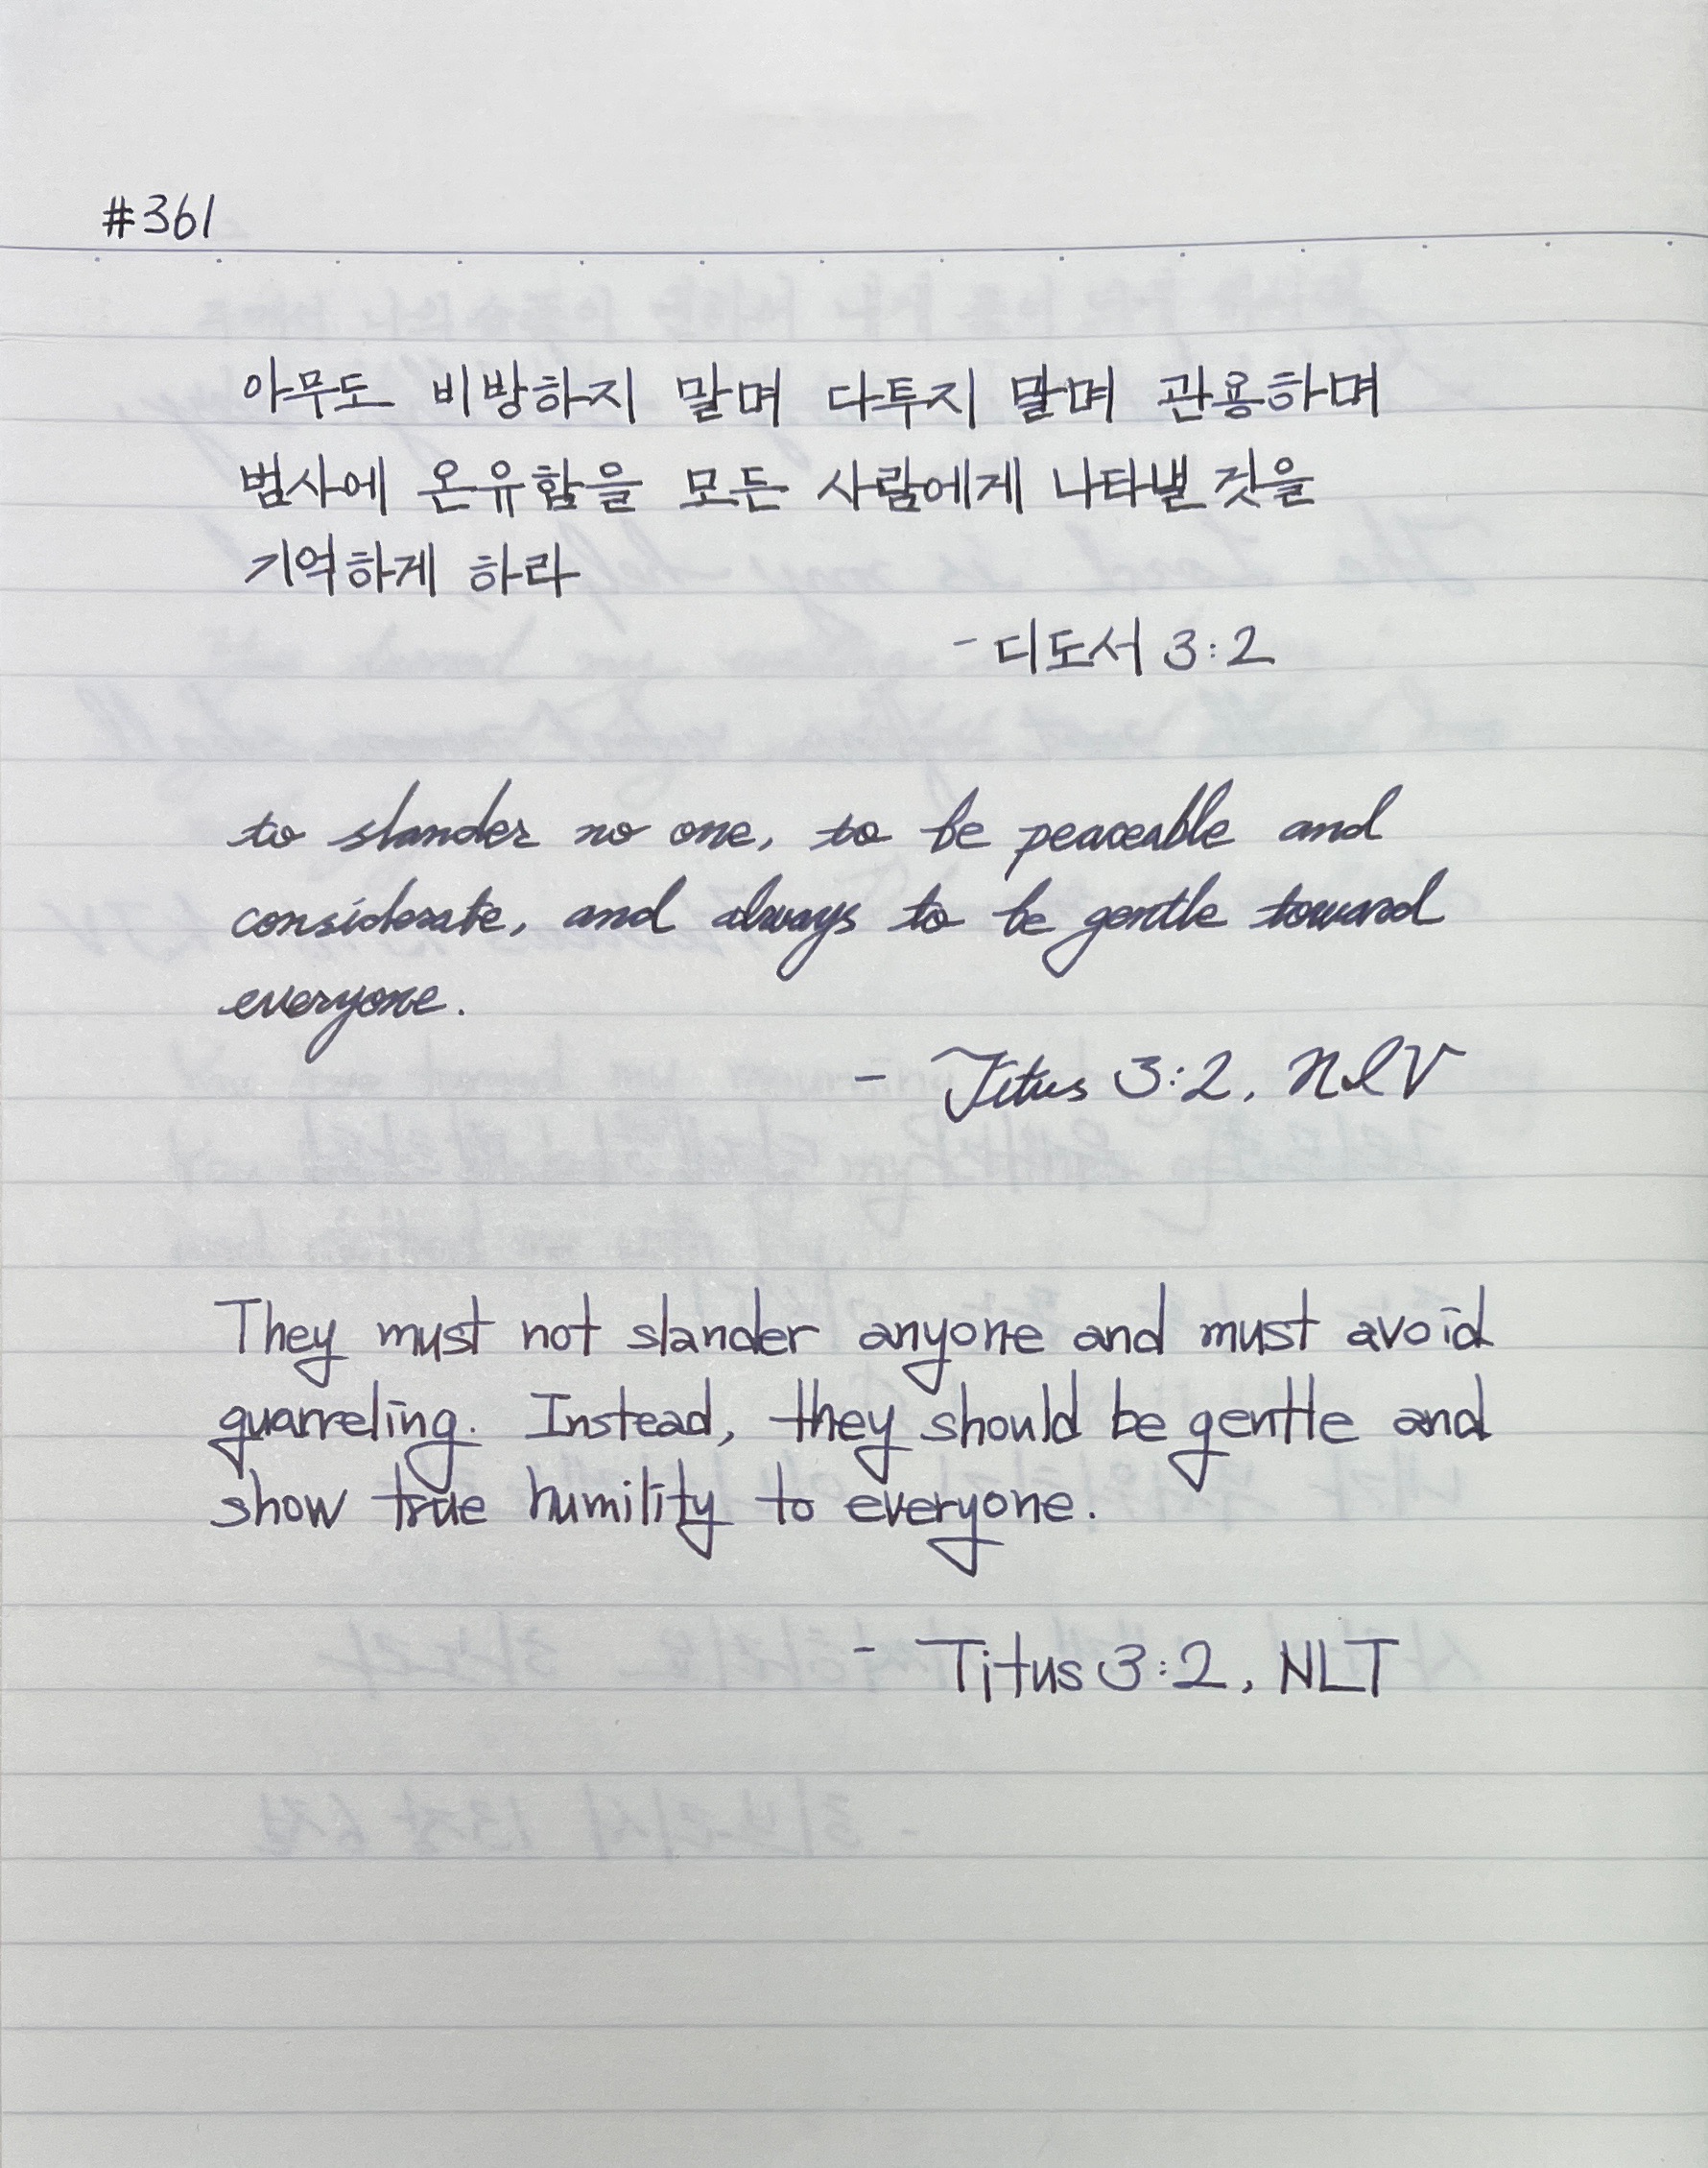 #361
아무도 비방하지 말며 다투지 말며 관용하며
범사에 온유함을 모든 사람에게 나타낼 것을
기억하게 하라
- 디도서 3:2
to slander no one, to be peaceable and
considerate, and always to be gentle toward
everyone.
- Titus 3:2, NIV
They must not slander anyone and must avoid
quarreling. Instead, they should be gentle and
show true humility to everyone.
- Titus 3:2, NLT